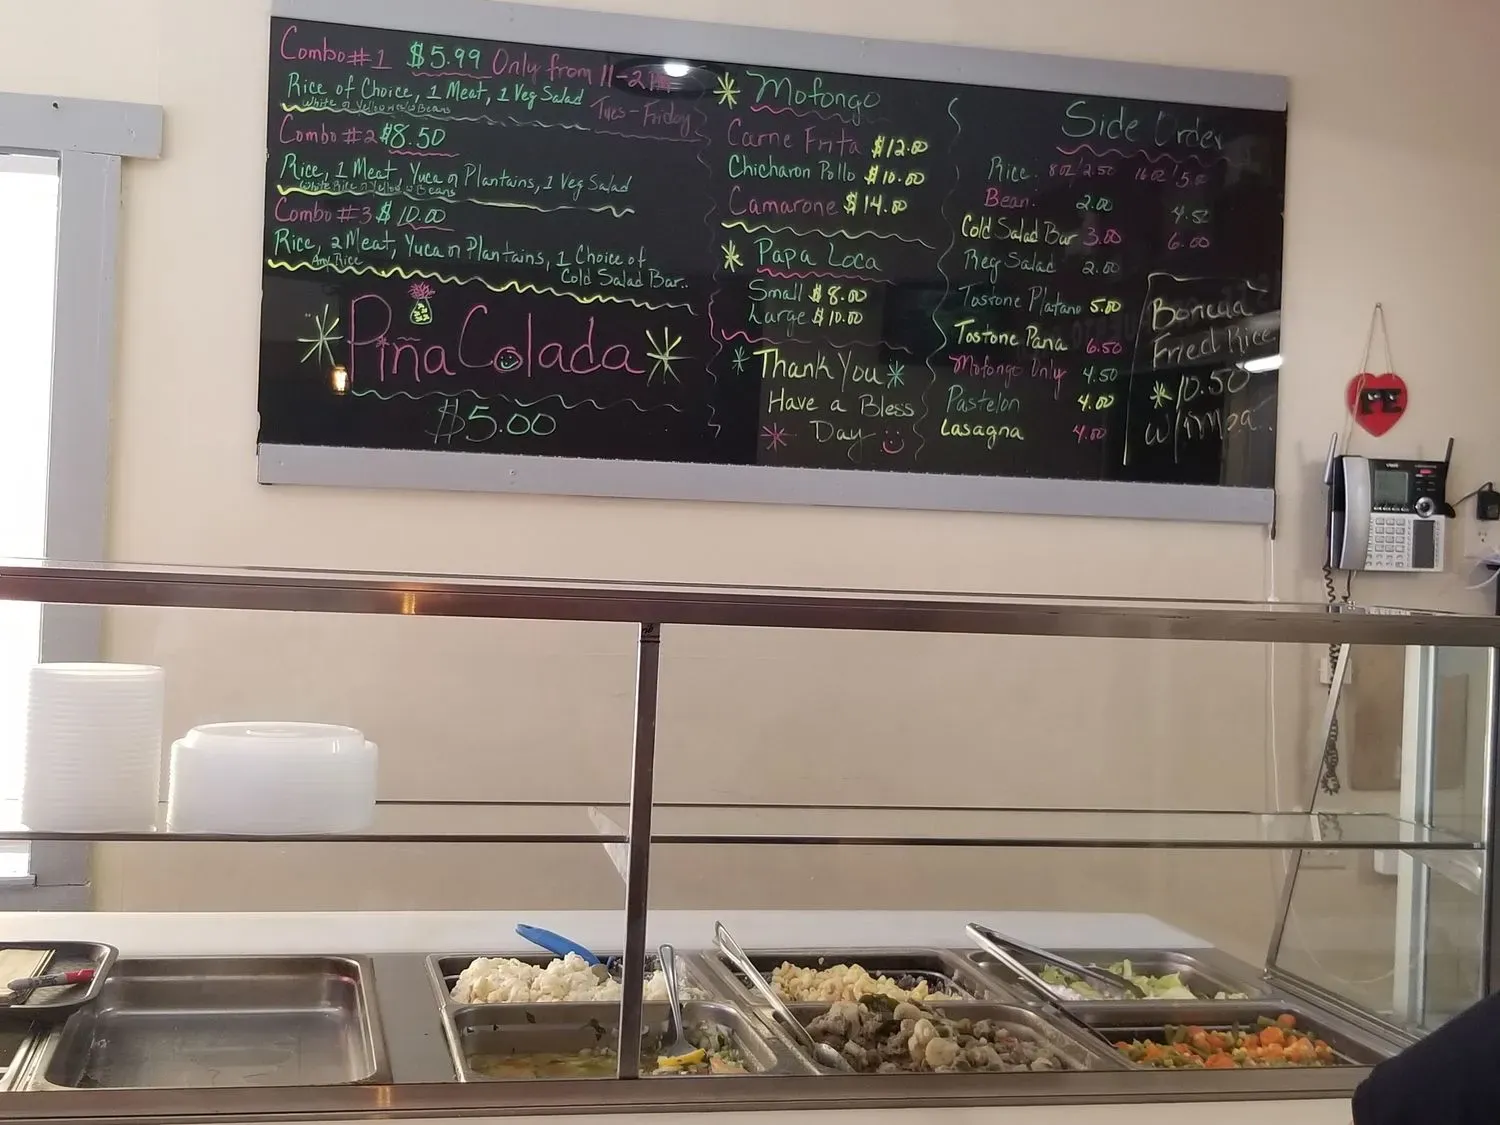 Combo#1 $5.99 Only from 11-2PM
Rice of Choice, 1 Meat, 1 Veg Salad
Tues-Friday
Combo#2 $8.50
Rice, 1 Meat, Yuca or Plantains, 1 Veg Salad
Combo #3 $10.00
Rice, 2 Meat, Yuca or Plantains, 1 Choice of
Any Rice
Cold Salad Bar..
Piña Colada
$5.00
Mofongo
Carne Frita $12.00
Chicharon Pollo $10.00
Camarone $14.00
Papa Loca
Small $8.00
Large $10.00
Thank You
Have a Bless
Day
Side Order
Rice. 8oz/2.50 16oz/5.00
Bean. 2.00 4.50
Cold Salad Bar 3.00 6.00
Reg Salad 2.00
Tostone Platano 5.00
Tostone Pana 6.50
Mofongo Only 4.50
Pastelon 4.00
Lasagna 4.00
Fried Rice
10.50